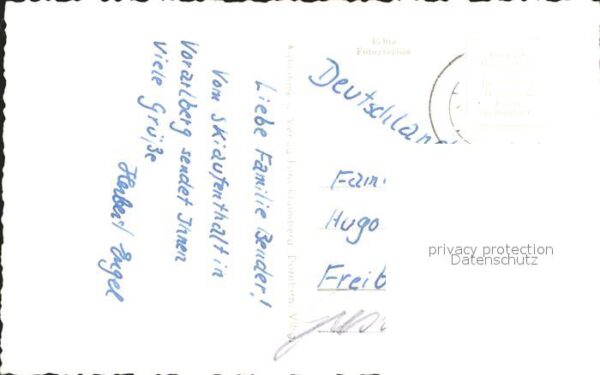 Liebe Familie Bender!
Vom Skiaufenthalt in
Vorarlberg sendet Ihnen
Viele Grüße
Herbert Engel
Echte
Fotographie
Deutschland
Fam
Hugo
Freib
privacy protection
Datenschutz